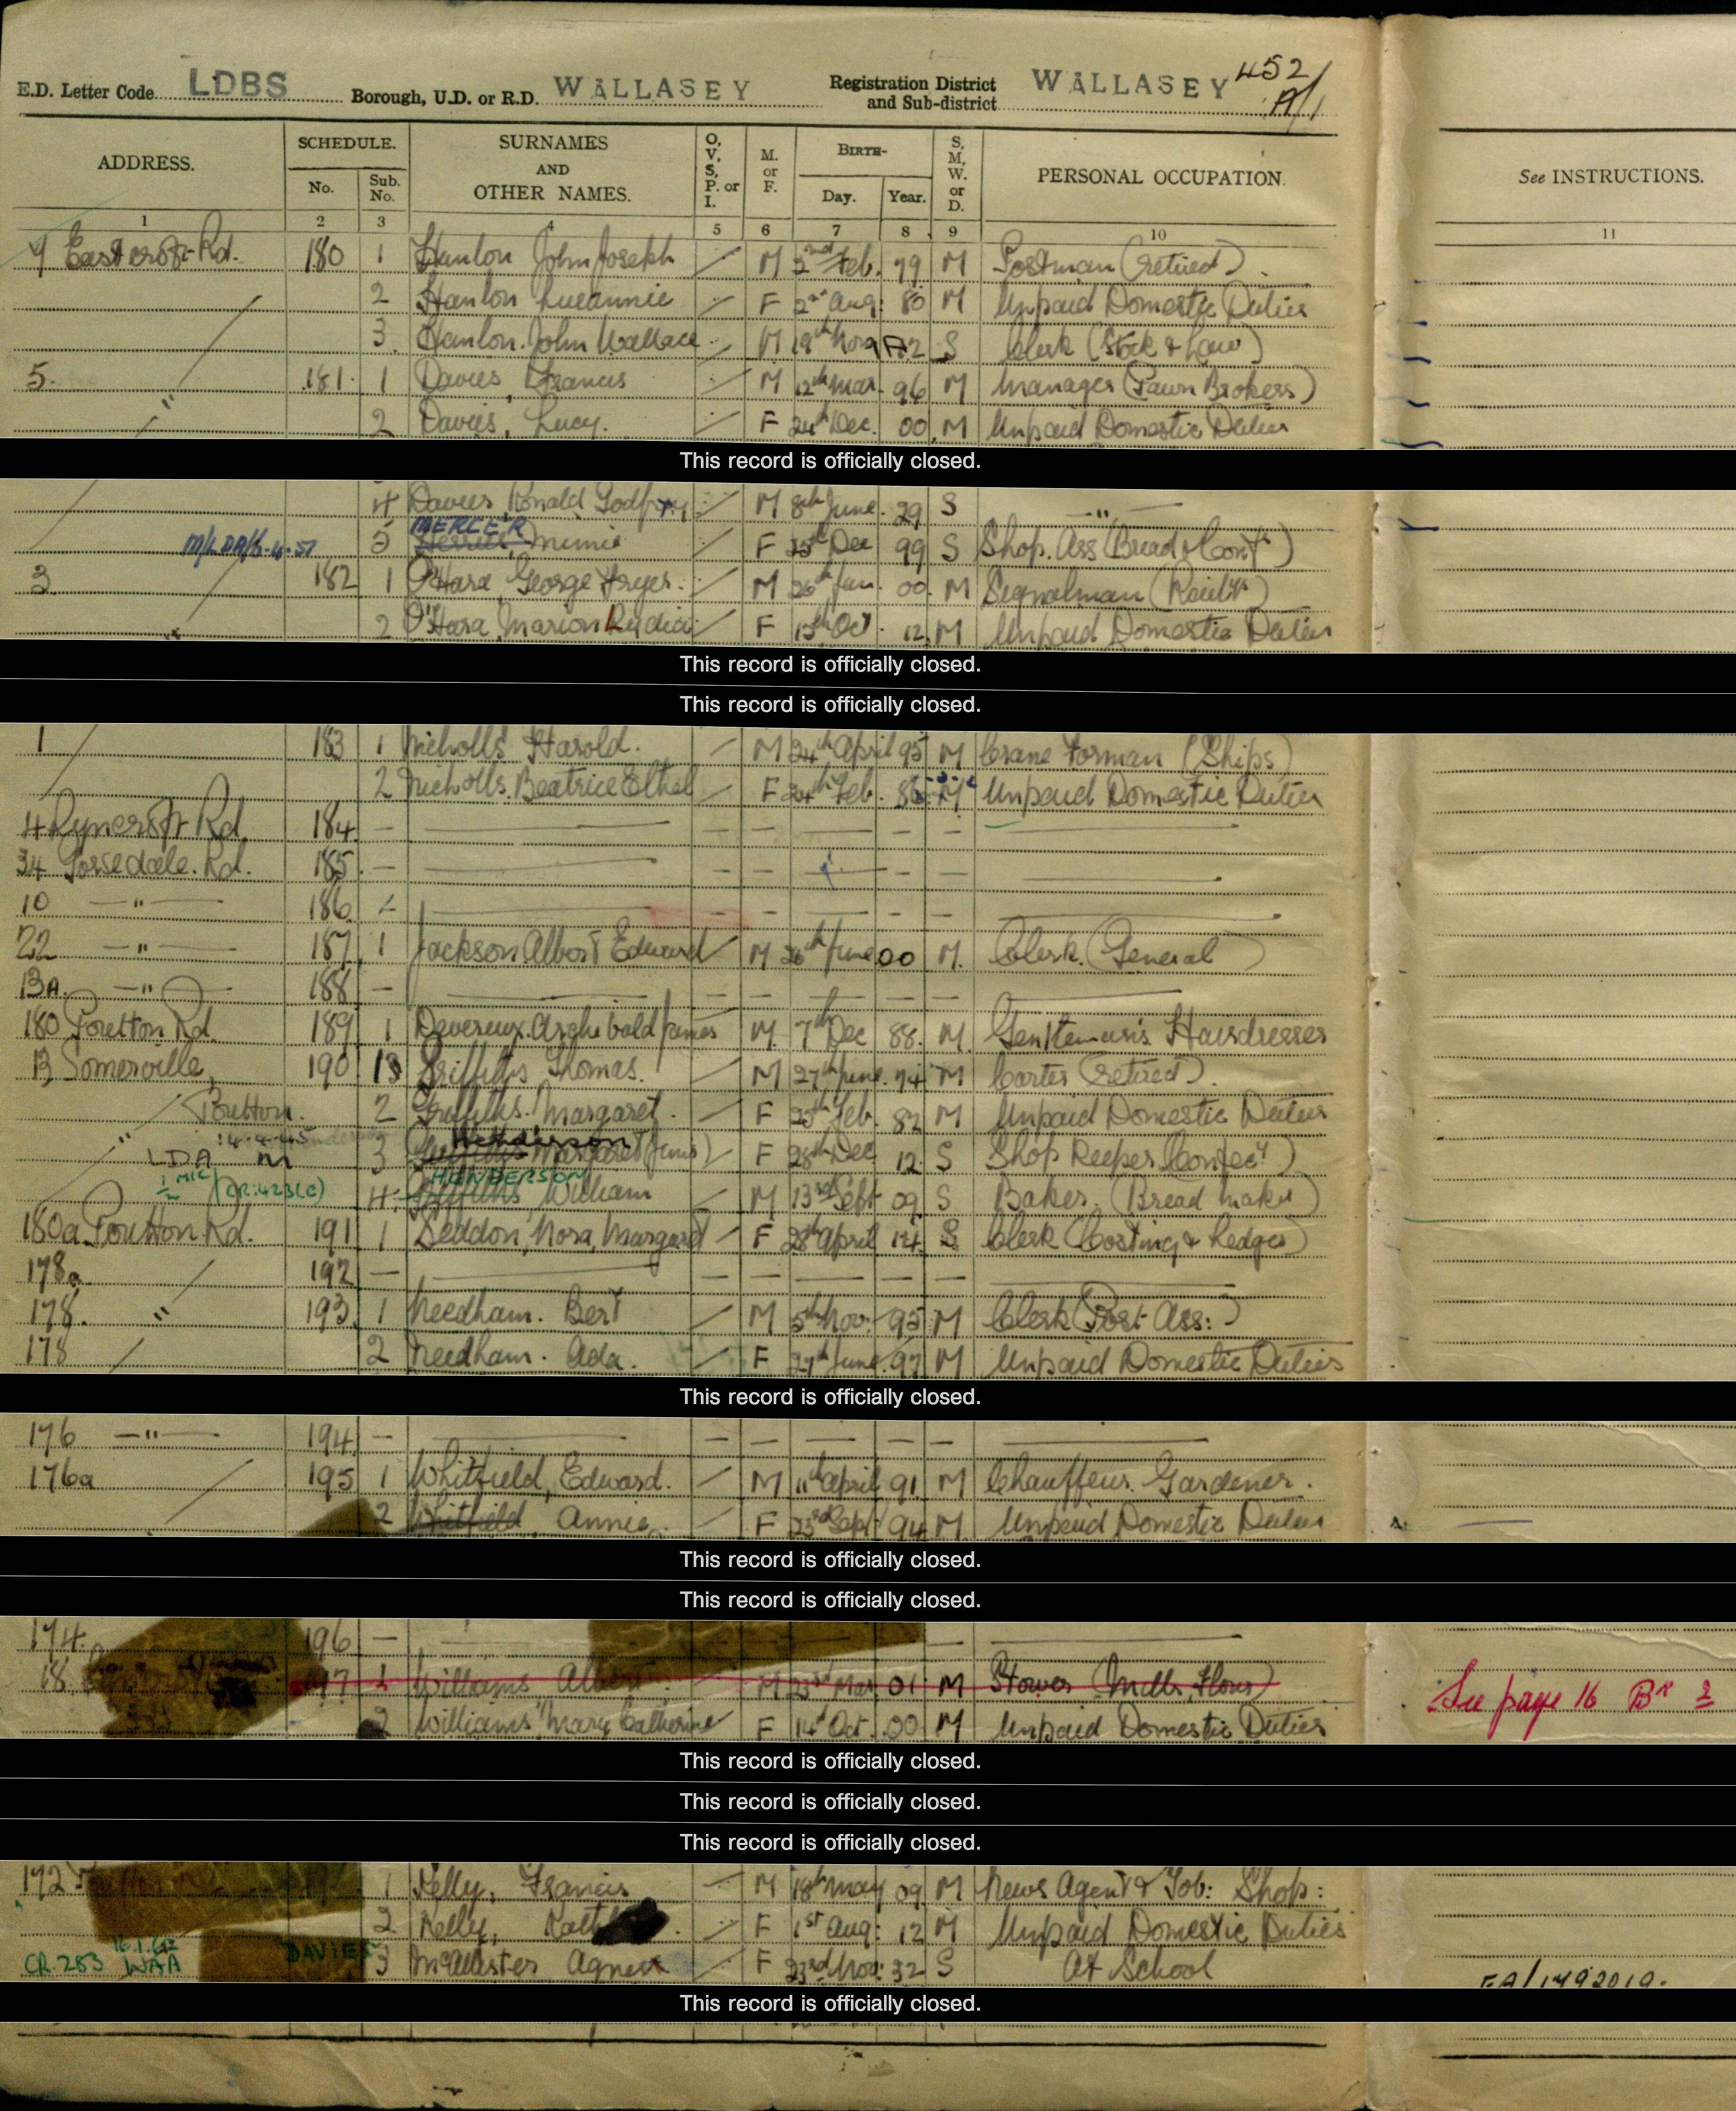 E.D. Letter Code LDBS Borough, U.D. or R.D. WALLASEY Registration District and Sub-district WALLASEY 452 A/1
ADDRESS. SCHEDULE. No. Sub. No. SURNAMES AND OTHER NAMES. O, V, S, P. or I. M. or F. BIRTH- Day. Year. S, M, W. or D. PERSONAL OCCUPATION. See INSTRUCTIONS.
1 2 3 4 5 6 7 8 9 10 11
9 Eastcroft Rd. 180 1 Hanlon John Joseph M 2nd Feb. 79 M Postman (retired).
2 Hanlon F 2nd Aug: 80 M Unpaid Domestic Duties
3. Hanlon. John Wallace M 19th Nov S Clerk
5. " 181. 1 Davies, Francis M 12th Mar. 96 M Manager (Pawn Brokers)
2 Davies, Lucy. F 24th Dec. 00. M Unpaid Domestic Duties
This record is officially closed.
4 Davies, Ronald Godfrey M 8th June. 29 S "
5 MERCER Minnie F Dec 99 S Shop. Ass (Bread & Conf)
3 182 1 O'Hara, George Fryer. M 26th Jan. 00. M Signalman (Railways)
" 2 O'Hara, Marion Lydia F 15th Oct. 12. M Unpaid Domestic Duties
This record is officially closed.
This record is officially closed.
1 183 1 Nicholls Harold. M 24th April 95 M Crane Forman (Ships)
2 Nicholls. Beatrice Ethel F 24th Feb. M Unpaid Domestic Duties
4 Ryecroft Rd. 184 —
34 Gorsedale. Rd. 185. —
10 — " — 186 —
22 — " — 187 1 Jackson Albert Edward M 26th June 00 M. Clerk. (General)
13A. — " — 188 —
180 Poulton Rd. 189 1 Devereux. Archibald James M. 7th Dec 88. M. Gentleman's Hairdresser
13 Somerville, 190 1 Griffiths Thomas. M 27th June. 74 M Carter (retired).
" Poulton. 2 Griffiths. Margaret. F 25th Feb. 82 M Unpaid Domestic Duties
14.4.45 LDA M 3 Henderson Margaret (Junr) F 28th Dec 12 S Shop Keeper
CR.423(C) HENDERSON 4. Griffiths William M 13th Sept 09 S Baker. (Bread maker)
180a Poulton Rd. 191 1 Seddon, Nora, Margaret F 28th April 14. S Clerk (Costing & Ledger)
178a 192 —
178. " 193. 1 Needham. Bert M 5th Nov: 95 M Clerk
178 2 Needham. Ada. F 27th June. 97 M Unpaid Domestic Duties
This record is officially closed.
176 — " — 194 —
176a 195 1 Whitfield, Edward. M 11th April 91 M Chauffeur. Gardener.
2 Whitfield, Annie. F 23rd Sept: 94 M. Unpaid Domestic Duties
This record is officially closed.
This record is officially closed.
174. 196 —
18 197 1 Williams Albert M 23rd Mar 01 M Stower (Mills, Flour) See page 16 Bk 2
2 Williams Mary Catherine F 14th Oct. 00 M Unpaid Domestic Duties
This record is officially closed.
This record is officially closed.
This record is officially closed.
172 1 Kelly, Francis M 18th May 09 M News Agent & Tob: Shop:
2 Kelly, F 1st Aug: 12 M Unpaid Domestic Duties
CR.283 WAA DAVIES 3 McAllister Agnes F 23rd Nov: 32 S At School
This record is officially closed.